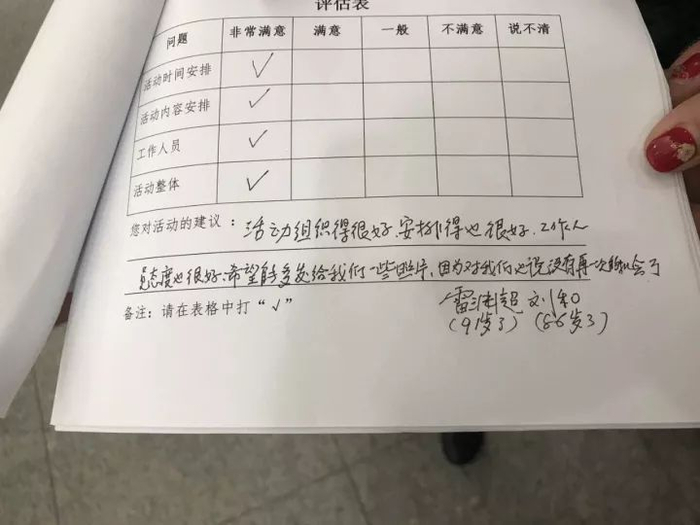 评估表
问题 非常满意 满意 一般 不满意 说不清
活动时间安排 ✓
活动内容安排 ✓
工作人员 ✓
活动整体 ✓
您对活动的建议：活动组织得很好、安排得也很好、工作人
员态度也很好、希望能多发给我们一些照片、因为对我们也说没有再一次的机会了
备注：请在表格中打“√”
雷 超 刘
（91岁了）（86岁了）